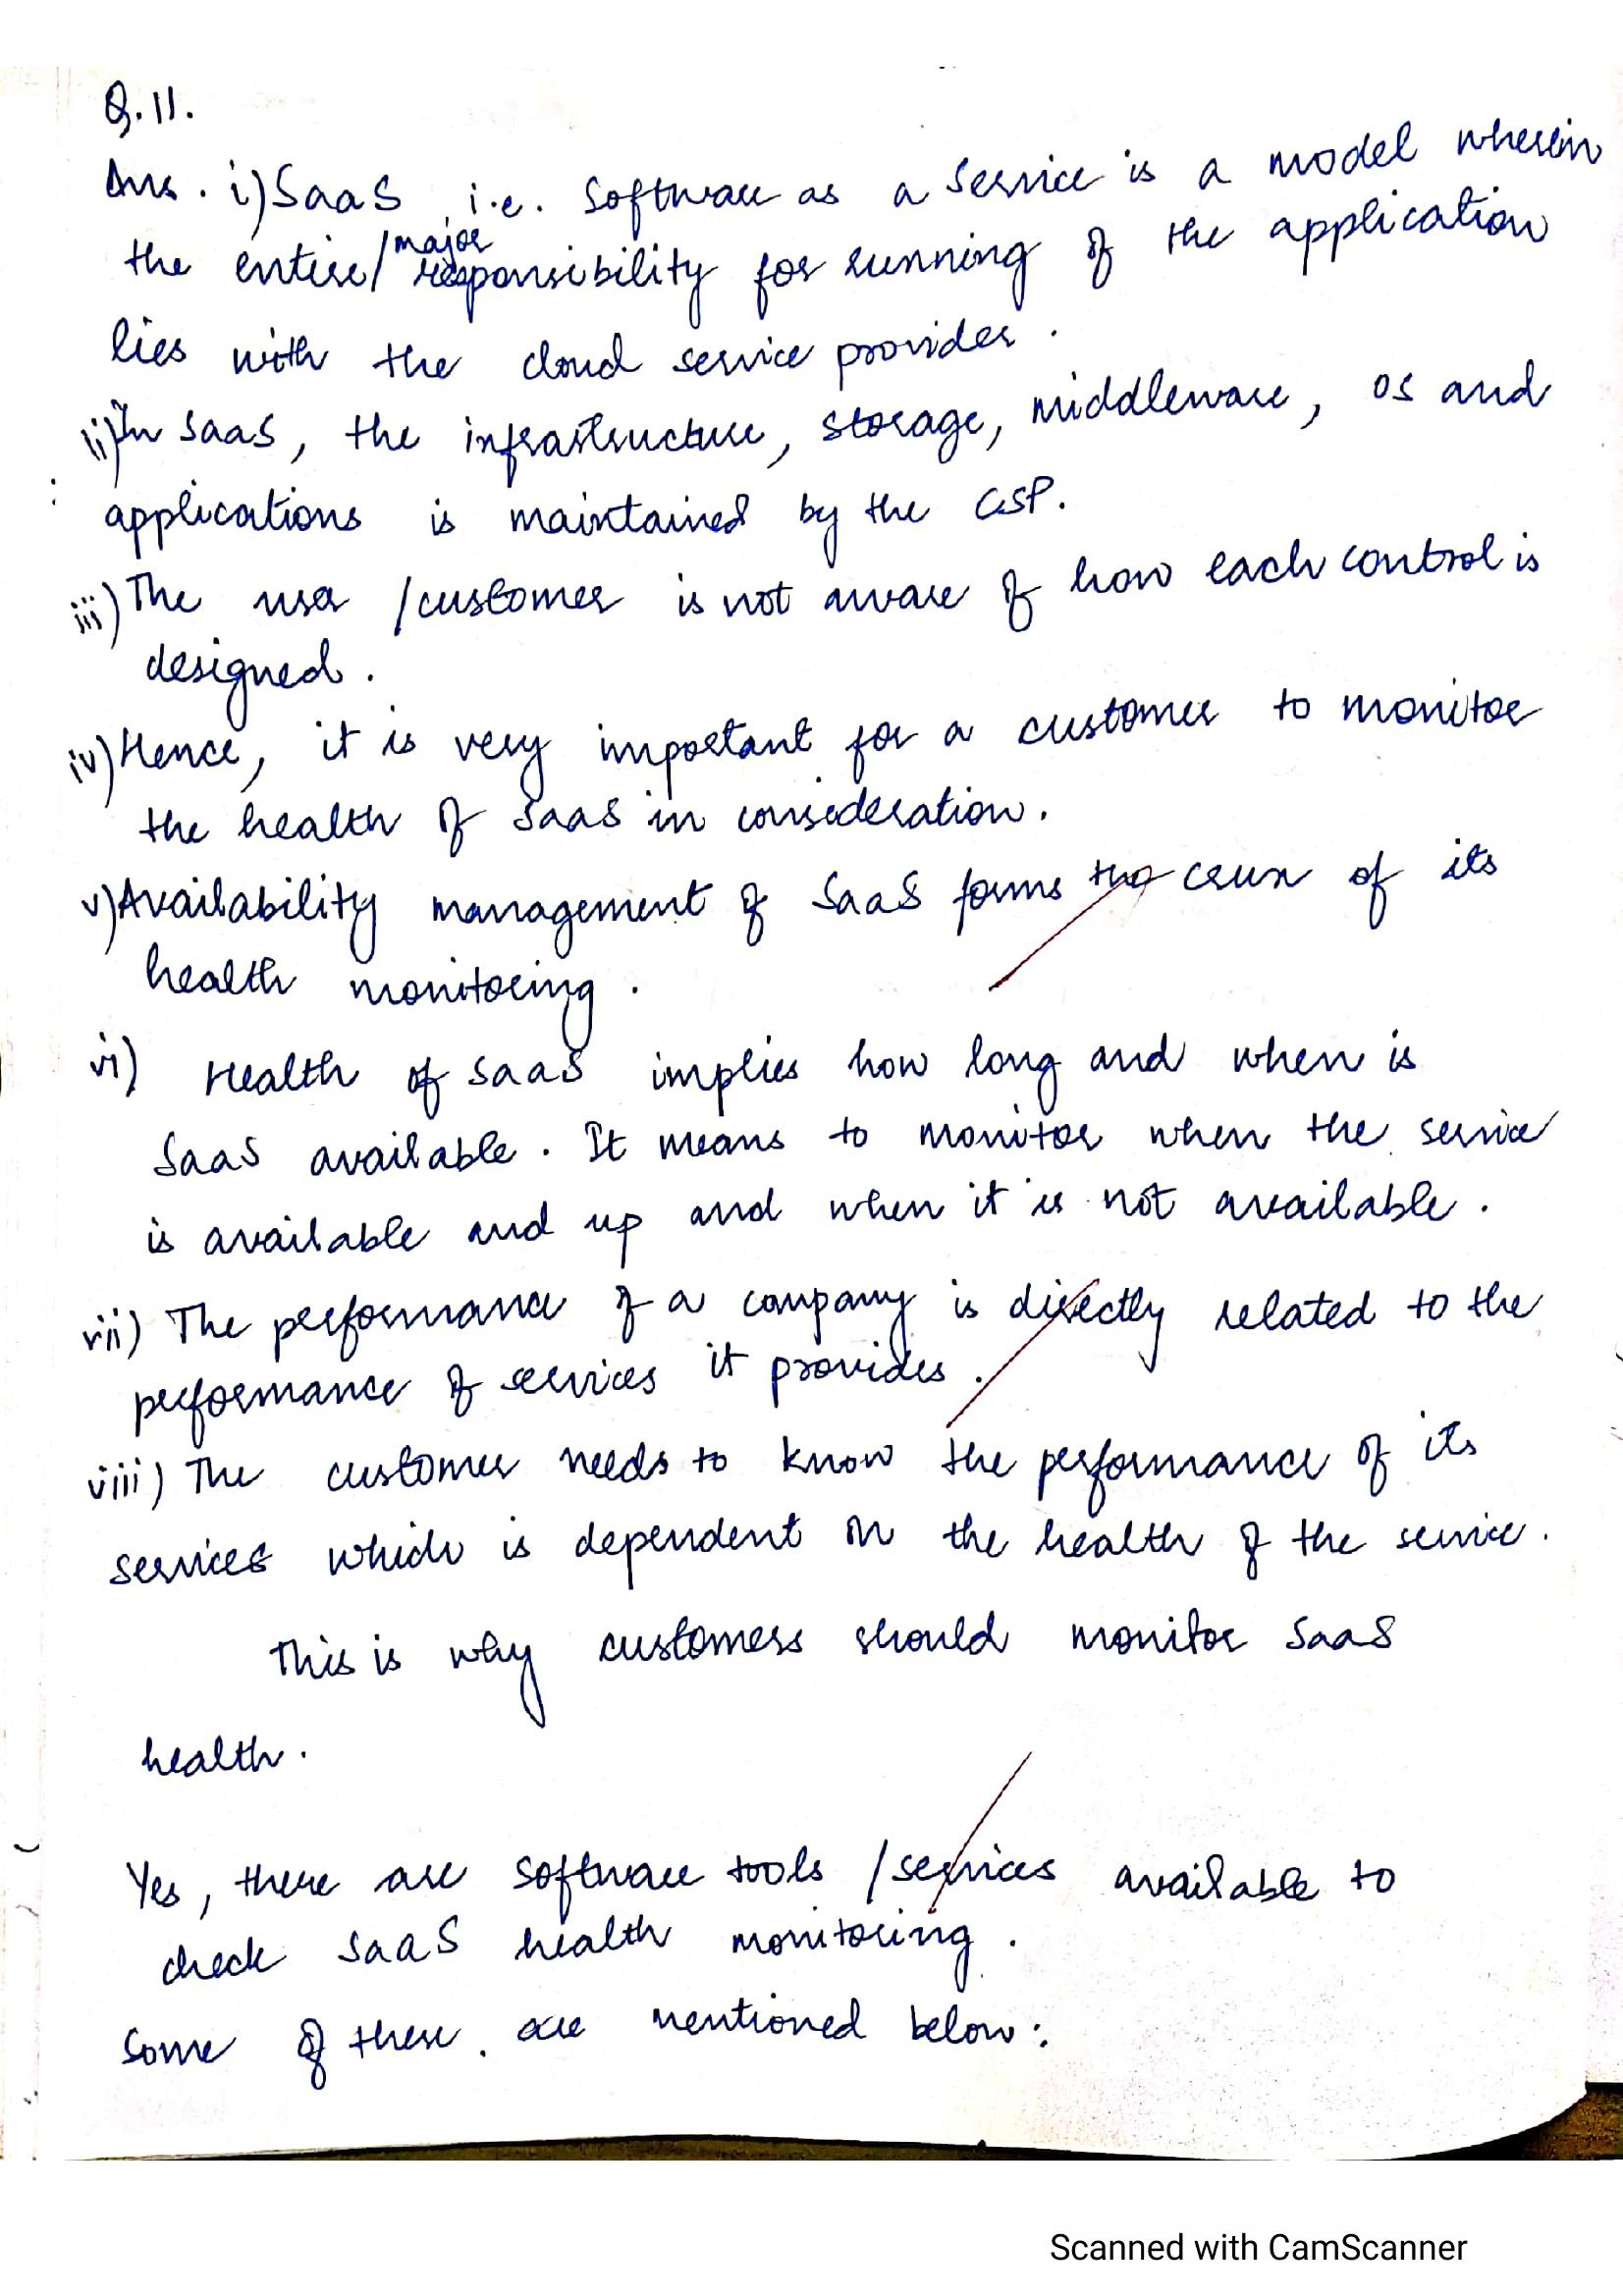 Q.11.
Ans. i) SaaS i.e. Software as a Service is a model wherein
the entire/major responsibility for running of the application
lies with the cloud service provider.
ii) In SaaS, the infrastructure, storage, middleware, OS and
applications is maintained by the CSP.
iii) The user /customer is not aware of how each control is
designed.
iv) Hence, it is very important for a customer to monitor
the health of SaaS in consideration.
v) Availability management of SaaS forms the crux of its
health monitoring.
vi) Health of SaaS implies how long and when is
SaaS available. It means to monitor when the service
is available and up and when it is not available.
vii) The performance of a company is directly related to the
performance of services it provides.
viii) The customer needs to know the performance of its
services which is dependent on the health of the service.
This is why customers should monitor SaaS
health.
Yes, there are software tools /services available to
check SaaS health monitoring.
Some of these are mentioned below:
Scanned with CamScanner